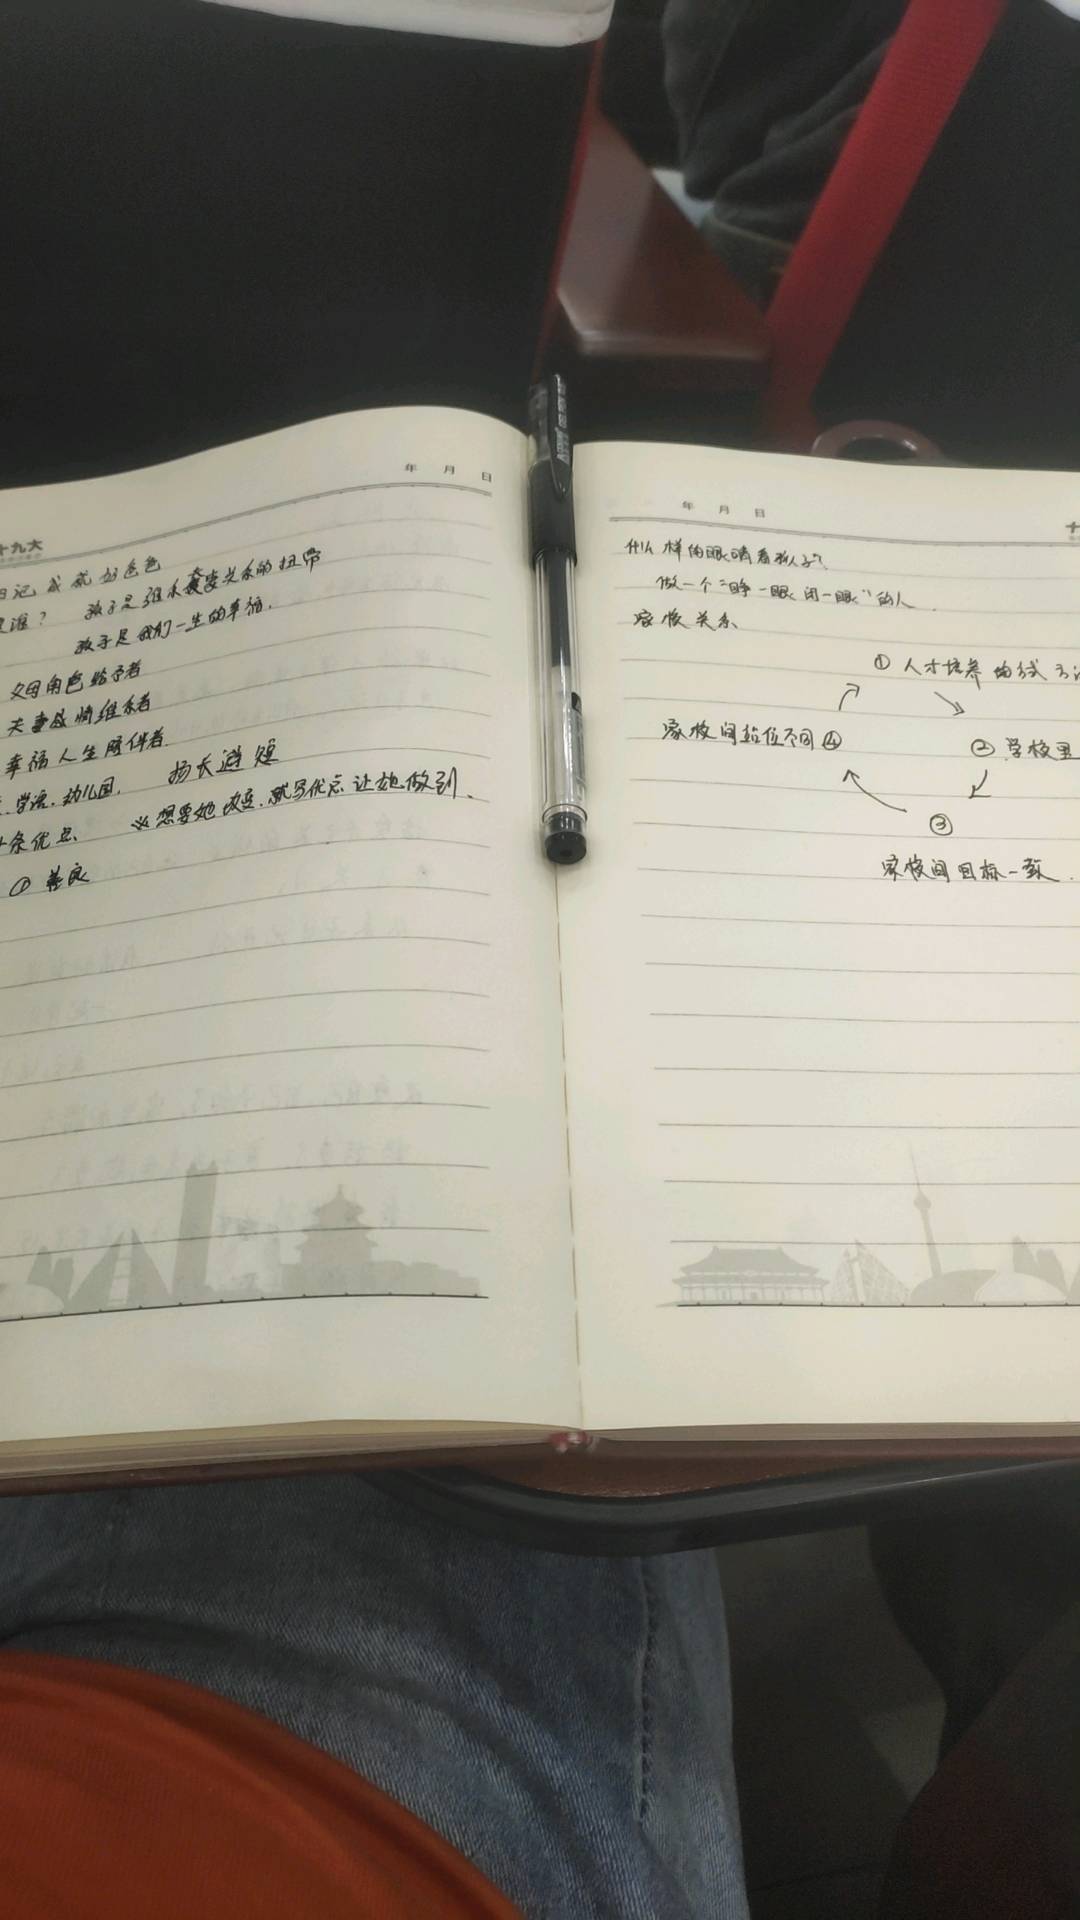 年 月 日
十九大
日记成就好爸爸
是谁? 孩子是维系夫妻关系的扭带
孩子是我们一生的幸福.
父母角色给予者
夫妻感情维系者
幸福人生陪伴者.
学语.幼儿园. 扬长避短
十条优点 ※想要她改变.就写优点让她做到.
① 善良
年 月 日
十
什么样的眼睛看孩子?
做一个"睁一眼闭一眼"的人.
家校关系
① 人才培养的
家校间站位不同④
② 学校里
③
家校间目标一致.